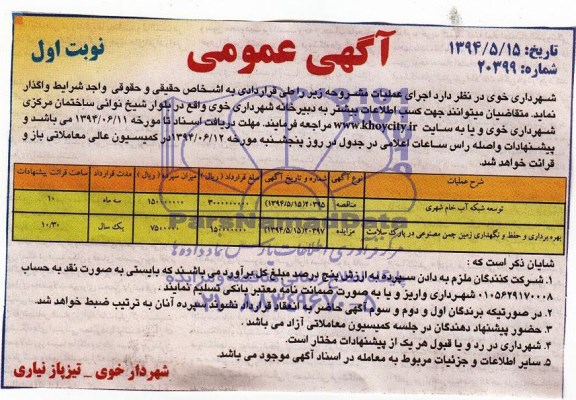 تاریخ: ۱۳۹۴/۵/۱۵
شماره: ۲۰۳۹۹
آگهی عمومی
نوبت اول
شهرداری خوی در نظر دارد اجرای عملیات مشروحه زیر را طی قراردادی به اشخاص حقیقی و حقوقی واجد شرایط واگذار
نماید. متقاضیان میتوانند جهت کسب اطلاعات بیشتر به دبیرخانه شهرداری خوی واقع در بلوار شیخ نوائی ساختمان مرکزی
شهرداری خوی و یا به سایت www.khoycity.ir مراجعه فرمایند. مهلت دریافت اسناد تا مورخه ۱۳۹۴/۰۶/۱۱ می باشد و
پیشنهادات واصله راس ساعات اعلامی در جدول در روز پنجشنبه مورخه ۱۳۹۴/۰۶/۱۲ در کمیسیون عالی معاملاتی باز و
قرائت خواهد شد.
شرح عملیات نوع آگهی شماره و تاریخ آگهی مبلغ قرارداد (ریال) میزان سپرده (ریال) مدت قرارداد ساعت قرائت پیشنهادات
توسعه شبکه آب خام شهری مناقصه ۲۰۳۹۵(۱۳۹۴/۵/۱۵) ۳۰۰۰۰۰۰۰۰۰ ۱۵۰۰۰۰۰۰۰ سه ماه ۱۰
بهره برداری و حفظ و نگهداری زمین چمن مصنوعی در پارک سلامت مزایده ۲۰۳۹۷(۱۳۹۴/۵/۱۵) ۱۵۰۰۰۰۰۰۰ ۷۵۰۰۰۰۰ یک سال ۱۰/۳۰
شایان ذکر است که :
۱. شرکت کنندگان ملزم به دادن سپرده به ارزش پنج درصد مبلغ کل برآورد می باشند که بایستی به صورت نقد به حساب
۰۱۰۵۶۲۹۱۷۰۰۰۸ شهرداری واریز و یا به صورت ضمانت نامه معتبر بانکی تسلیم نمایند .
۲. در صورتیکه برندگان اول و دوم و سوم آگهی حاضر به انعقاد قرارداد نشوند سپرده آنان به ترتیب ضبط خواهد شد.
۳. حضور پیشنهاد دهندگان در جلسه کمیسیون معاملاتی آزاد می باشد .
۴. شهرداری در رد و یا قبول هر یک از پیشنهادات مختار است.
۵. سایر اطلاعات و جزئیات مربوط به معامله در اسناد آگهی موجود می باشد.
شهردار خوی _ تیزپاز نیاری
ParsNamadData
۰۲۱-۸۸۳۴۹۶۷۰-۵